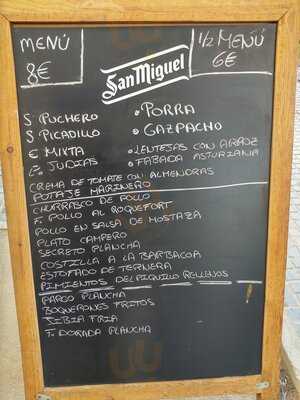 MENÚ
8€
San Miguel
1/2 MENÚ
6€
S. PUCHERO
S. PICADILLO
E. MIXTA
E. JUDIAS
• PORRA
• GAZPACHO
• LENTEJAS CON ARROZ
• FABADA ASTURIANA
CREMA DE TOMATE CON ALMENDRAS
POTAJE MARINERO
CHURRASCO DE POLLO
F. POLLO AL ROQUEFORT
POLLO EN SALSA DE MOSTAZA
PLATO CAMPERO
SECRETO PLANCHA
COSTILLA A LA BARBACOA
ESTOFADO DE TERNERA
PIMIENTOS DEL PIQUILLO RELLENOS
PARGO PLANCHA
BOQUERONES FRITOS
JIBIA FRIA
F. DORADA PLANCHA